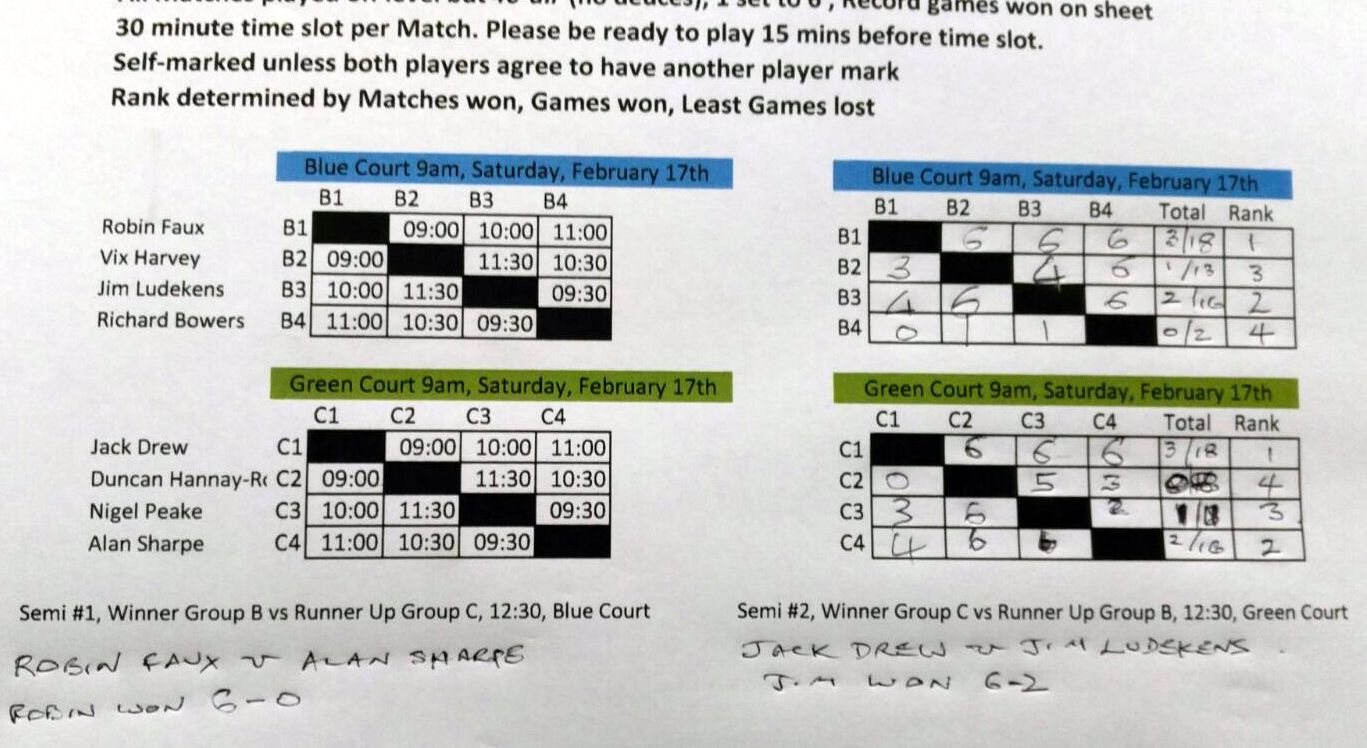 30 minute time slot per Match. Please be ready to play 15 mins before time slot.
Self-marked unless both players agree to have another player mark
Rank determined by Matches won, Games won, Least Games lost
Blue Court 9am, Saturday, February 17th
B1 B2 B3 B4
Robin Faux B1 09:00 10:00 11:00
Vix Harvey B2 09:00 11:30 10:30
Jim Ludekens B3 10:00 11:30 09:30
Richard Bowers B4 11:00 10:30 09:30
Blue Court 9am, Saturday, February 17th
B1 B2 B3 B4 Total Rank
B1 6 6 6 3/18 1
B2 3 4 6 1/13 3
B3 4 6 6 2/16 2
B4 0 1 1 0/2 4
Green Court 9am, Saturday, February 17th
C1 C2 C3 C4
Jack Drew C1 09:00 10:00 11:00
Duncan Hannay-R C2 09:00 11:30 10:30
Nigel Peake C3 10:00 11:30 09:30
Alan Sharpe C4 11:00 10:30 09:30
Green Court 9am, Saturday, February 17th
C1 C2 C3 C4 Total Rank
C1 6 6 6 3/18 1
C2 0 5 3 4
C3 3 6 2 3
C4 4 6 6 2/16 2
Semi #1, Winner Group B vs Runner Up Group C, 12:30, Blue Court
ROBIN FAUX v ALAN SHARPE
ROBIN WON 6-0
Semi #2, Winner Group C vs Runner Up Group B, 12:30, Green Court
JACK DREW v JIM LUDEKENS.
JIM WON 6-2